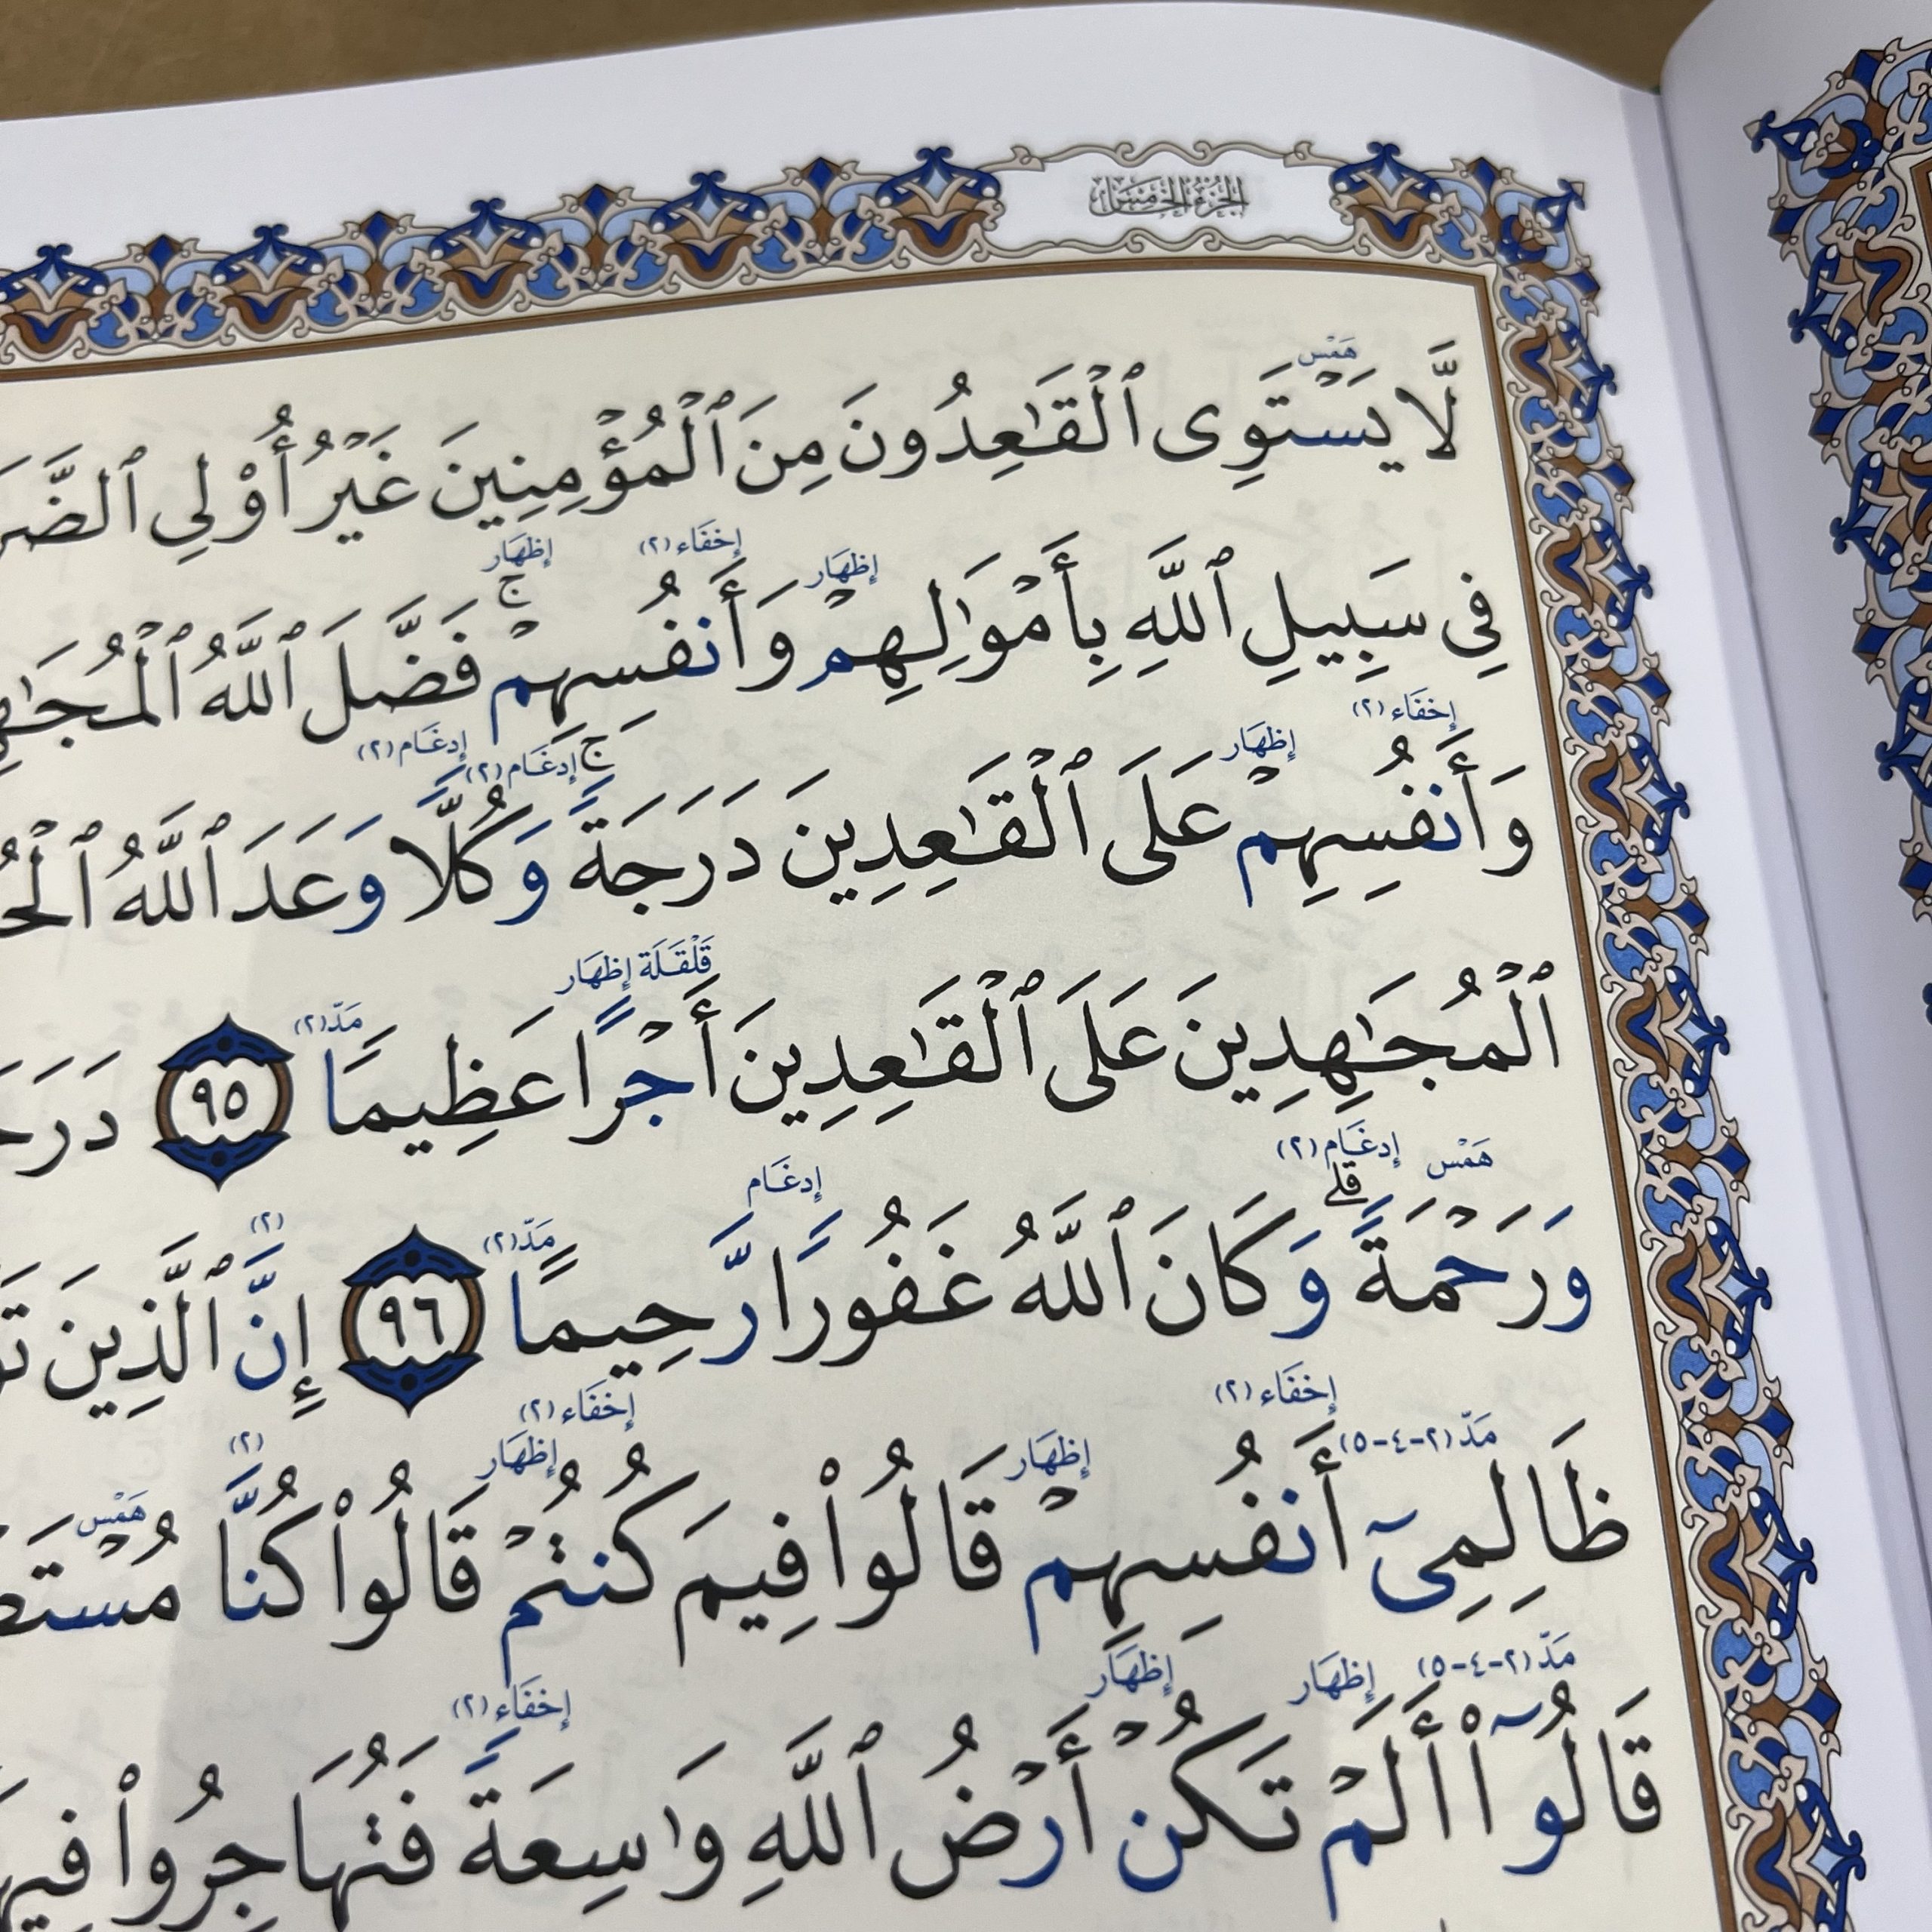 الجزء الخامس
هَمْس
لَّا يَسْتَوِى ٱلْقَٰعِدُونَ مِنَ ٱلْمُؤْمِنِينَ غَيْرُ أُو۟لِى
إظهَار إخفَاء (٢) إظهَار
فِى سَبِيلِ ٱللَّهِ بِأَمْوَٰلِهِمْ وَأَنفُسِهِمْ ۚ فَضَّلَ ٱللَّهُ
إخفَاء (٢) إظهَار إدغَام (٢) إدغَام (٢)
وَأَنفُسِهِمْ عَلَى ٱلْقَٰعِدِينَ دَرَجَةً ۚ وَكُلًّا وَعَدَ ٱللَّهُ
قَلْقَلَة إظهَار مَدّ (٢)
ٱلْمُجَٰهِدِينَ عَلَى ٱلْقَٰعِدِينَ أَجْرًا عَظِيمًا ٩٥
هَمْس إدغَام (٢) إدغَام مَدّ (٢) (٢)
وَرَحْمَةً ۗ وَكَانَ ٱللَّهُ غَفُورًا رَّحِيمًا ٩٦ إِنَّ ٱلَّذِينَ
مَدّ (٢-٤-٥) إخفَاء (٢) إظهَار إخفَاء (٢) إظهَار (٢) هَمْس
ظَالِمِىٓ أَنفُسِهِمْ قَالُوا۟ فِيمَ كُنتُمْ قَالُوا۟ كُنَّا
مَدّ (٢-٤-٥) إظهَار إظهَار إخفَاء (٢)
قَالُوٓا۟ أَلَمْ تَكُنْ أَرْضُ ٱللَّهِ وَٰسِعَةً فَتُهَاجِرُوا۟